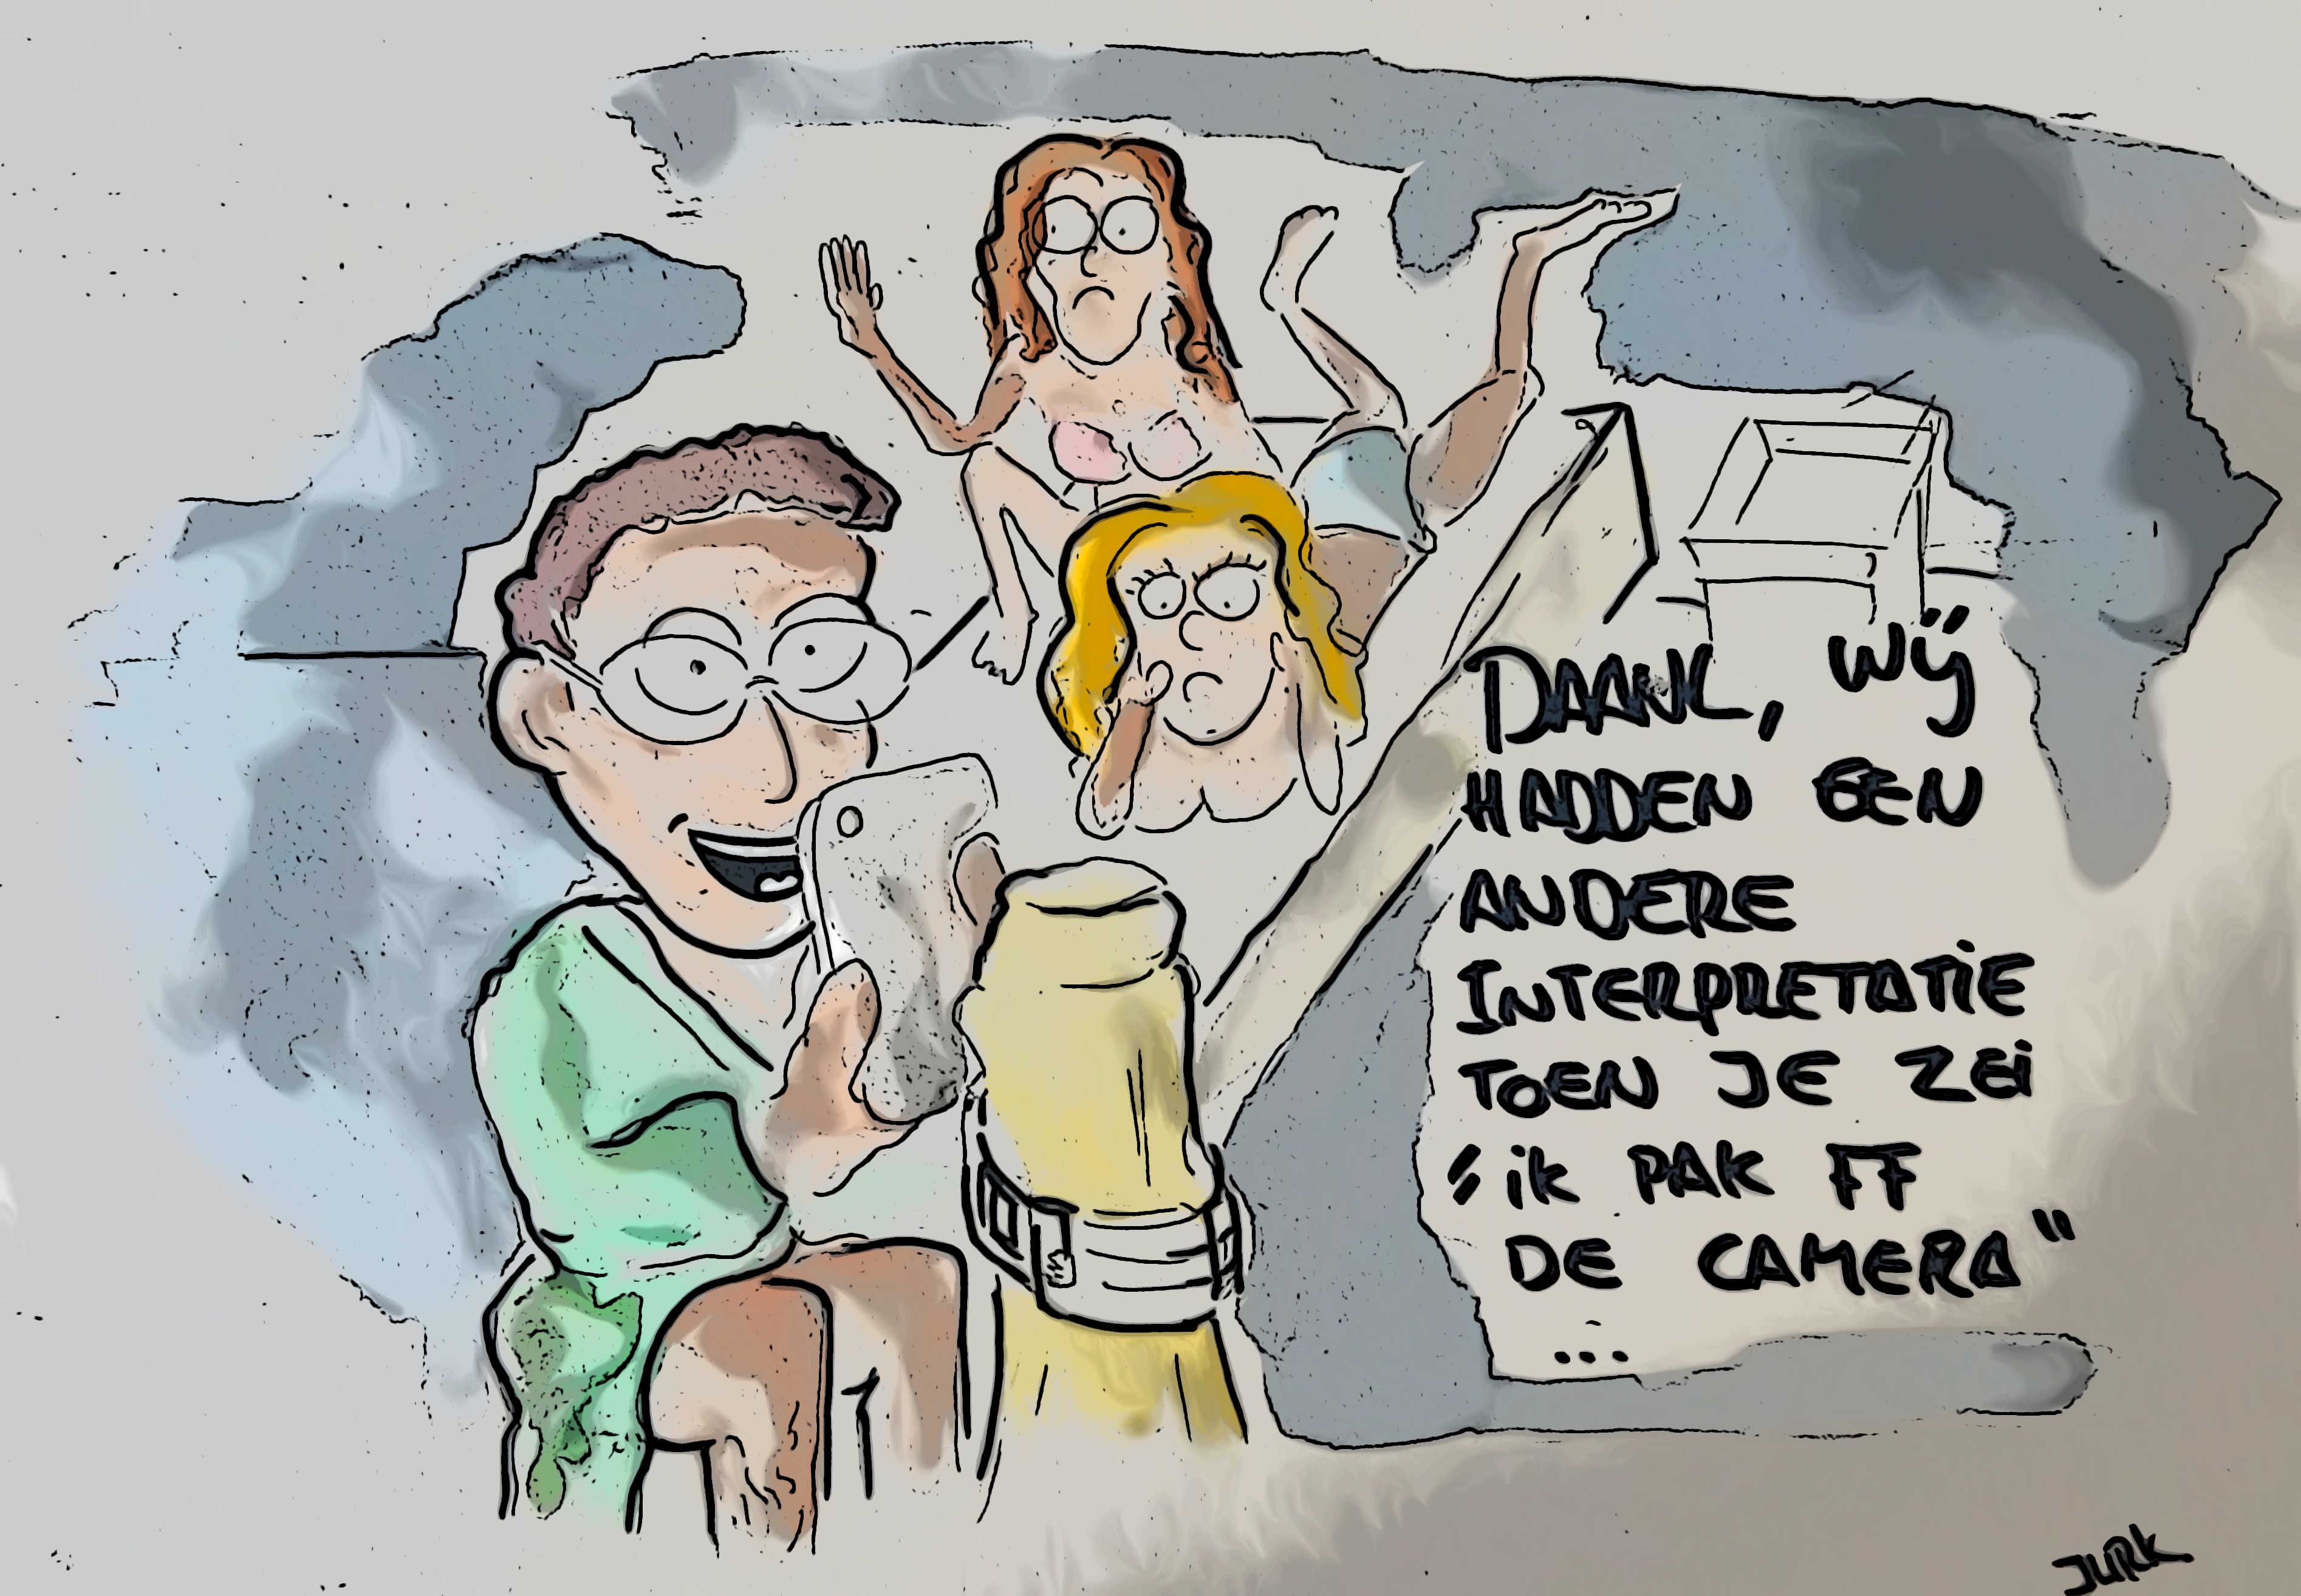 DAANL, WIJ
HADDEN EEN
ANDERE
INTERPRETATIE
TOEN JE ZEI
"IK PAK FF
DE CAMERA"
...
JURK